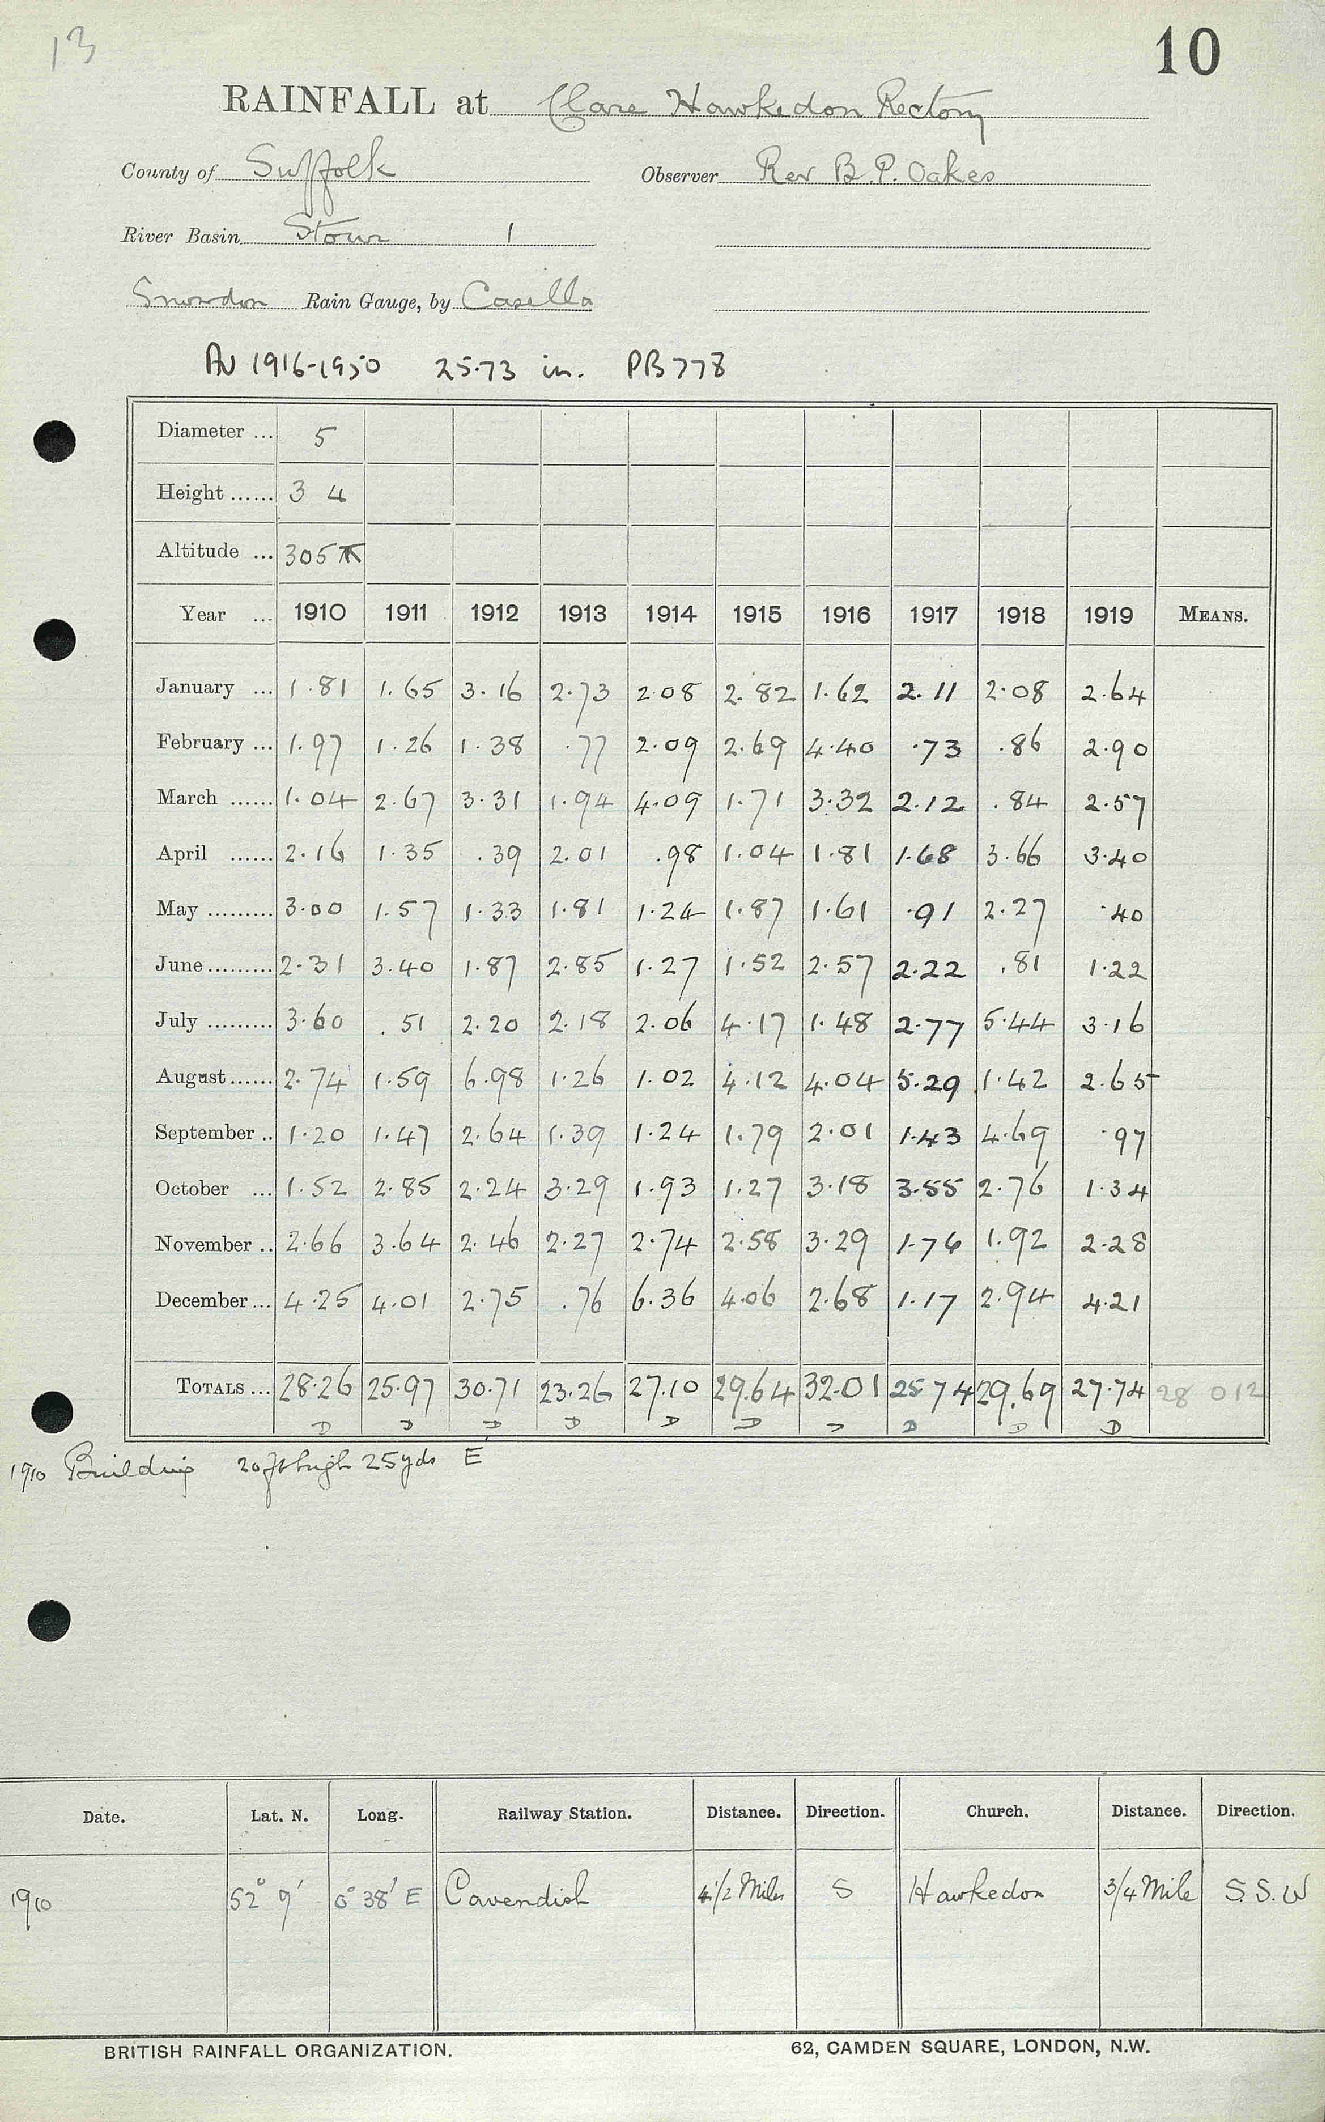 13
10
RAINFALL at Clare Hawkedon Rectory
County of Suffolk Observer Rev B.P. Oakes
River Basin Stour 1
Snowdon Rain Gauge, by Casella
AV 1916-1950 25.73 in. PB778
Diameter ... 5
Height ...... 3 4
Altitude ... 305
Year ... 1910 1911 1912 1913 1914 1915 1916 1917 1918 1919 MEANS.
January ... 1.81 1.65 3.16 2.73 2.08 2.82 1.62 2.11 2.08 2.64
February ... 1.97 1.26 1.38 .77 2.09 2.69 4.40 .73 .86 2.90
March ...... 1.04 2.67 3.31 1.94 4.09 1.71 3.32 2.12 .84 2.57
April ...... 2.16 1.35 .39 2.01 .98 1.04 1.81 1.68 3.66 3.40
May ......... 3.00 1.57 1.33 1.81 1.24 1.87 1.61 .91 2.27 .40
June ......... 2.31 3.40 1.87 2.85 1.27 1.52 2.57 2.22 .81 1.22
July ......... 3.60 .51 2.20 2.18 2.06 4.17 1.48 2.77 5.44 3.16
August ...... 2.74 1.59 6.98 1.26 1.02 4.12 4.04 5.29 1.42 2.65
September .. 1.20 1.47 2.64 1.39 1.24 1.79 2.01 1.43 4.69 .97
October ... 1.52 2.85 2.24 3.29 1.93 1.27 3.18 3.55 2.76 1.34
November .. 2.66 3.64 2.46 2.27 2.74 2.58 3.29 1.76 1.92 2.28
December ... 4.25 4.01 2.75 .76 6.36 4.06 2.68 1.17 2.94 4.21
TOTALS ... 28.26 25.97 30.71 23.26 27.10 29.64 32.01 25.74 29.69 27.74 28 012
D D D D D D D D D D
1910 Building 20 ft high 25 yds E
Date. Lat. N. Long. Railway Station. Distance. Direction. Church. Distance. Direction.
1910 52° 9' 0° 38' E Cavendish 4 1/2 Miles S Hawkedon 3/4 Mile S.S.W
BRITISH RAINFALL ORGANIZATION. 62, CAMDEN SQUARE, LONDON, N.W.